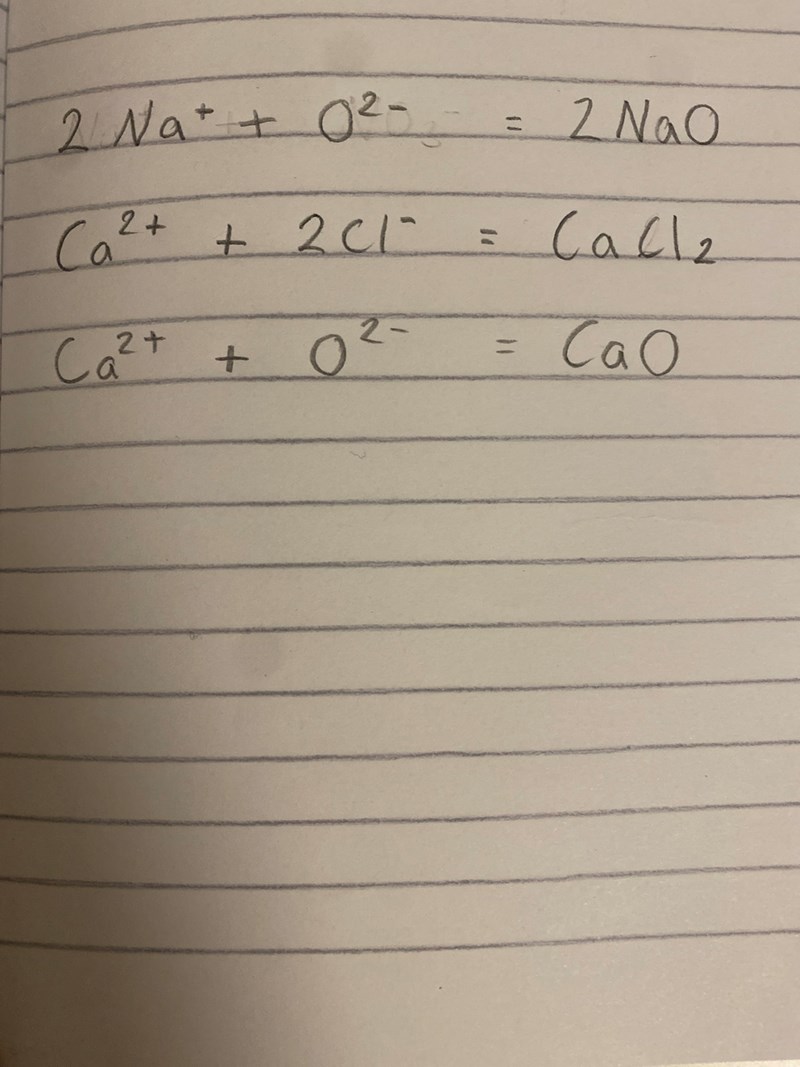 2 Na⁺ + O²⁻ = 2 NaO
Ca²⁺ + 2Cl⁻ = CaCl₂
Ca²⁺ + O²⁻ = CaO